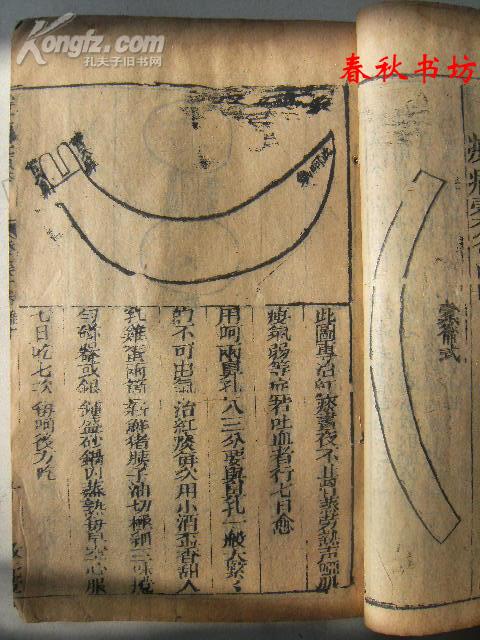 Kongfz.com
孔夫子旧书网
春秋书坊
此圖專治紅痰晝夜不止骨蒸勞熱声啞肌
瘦氣弱等症若吐血者行七日愈
用呵兩鼻孔入三分要與鼻孔一般大緊
的不可出氣治紅痰每次用小酒盃香甜人
乳雞蛋兩個新鮮猪胰子油切極細三味攪
匀磁器或銀鍾盛砂鍋内蒸熟每早空心服
七日吃七次每呵後方吃
式